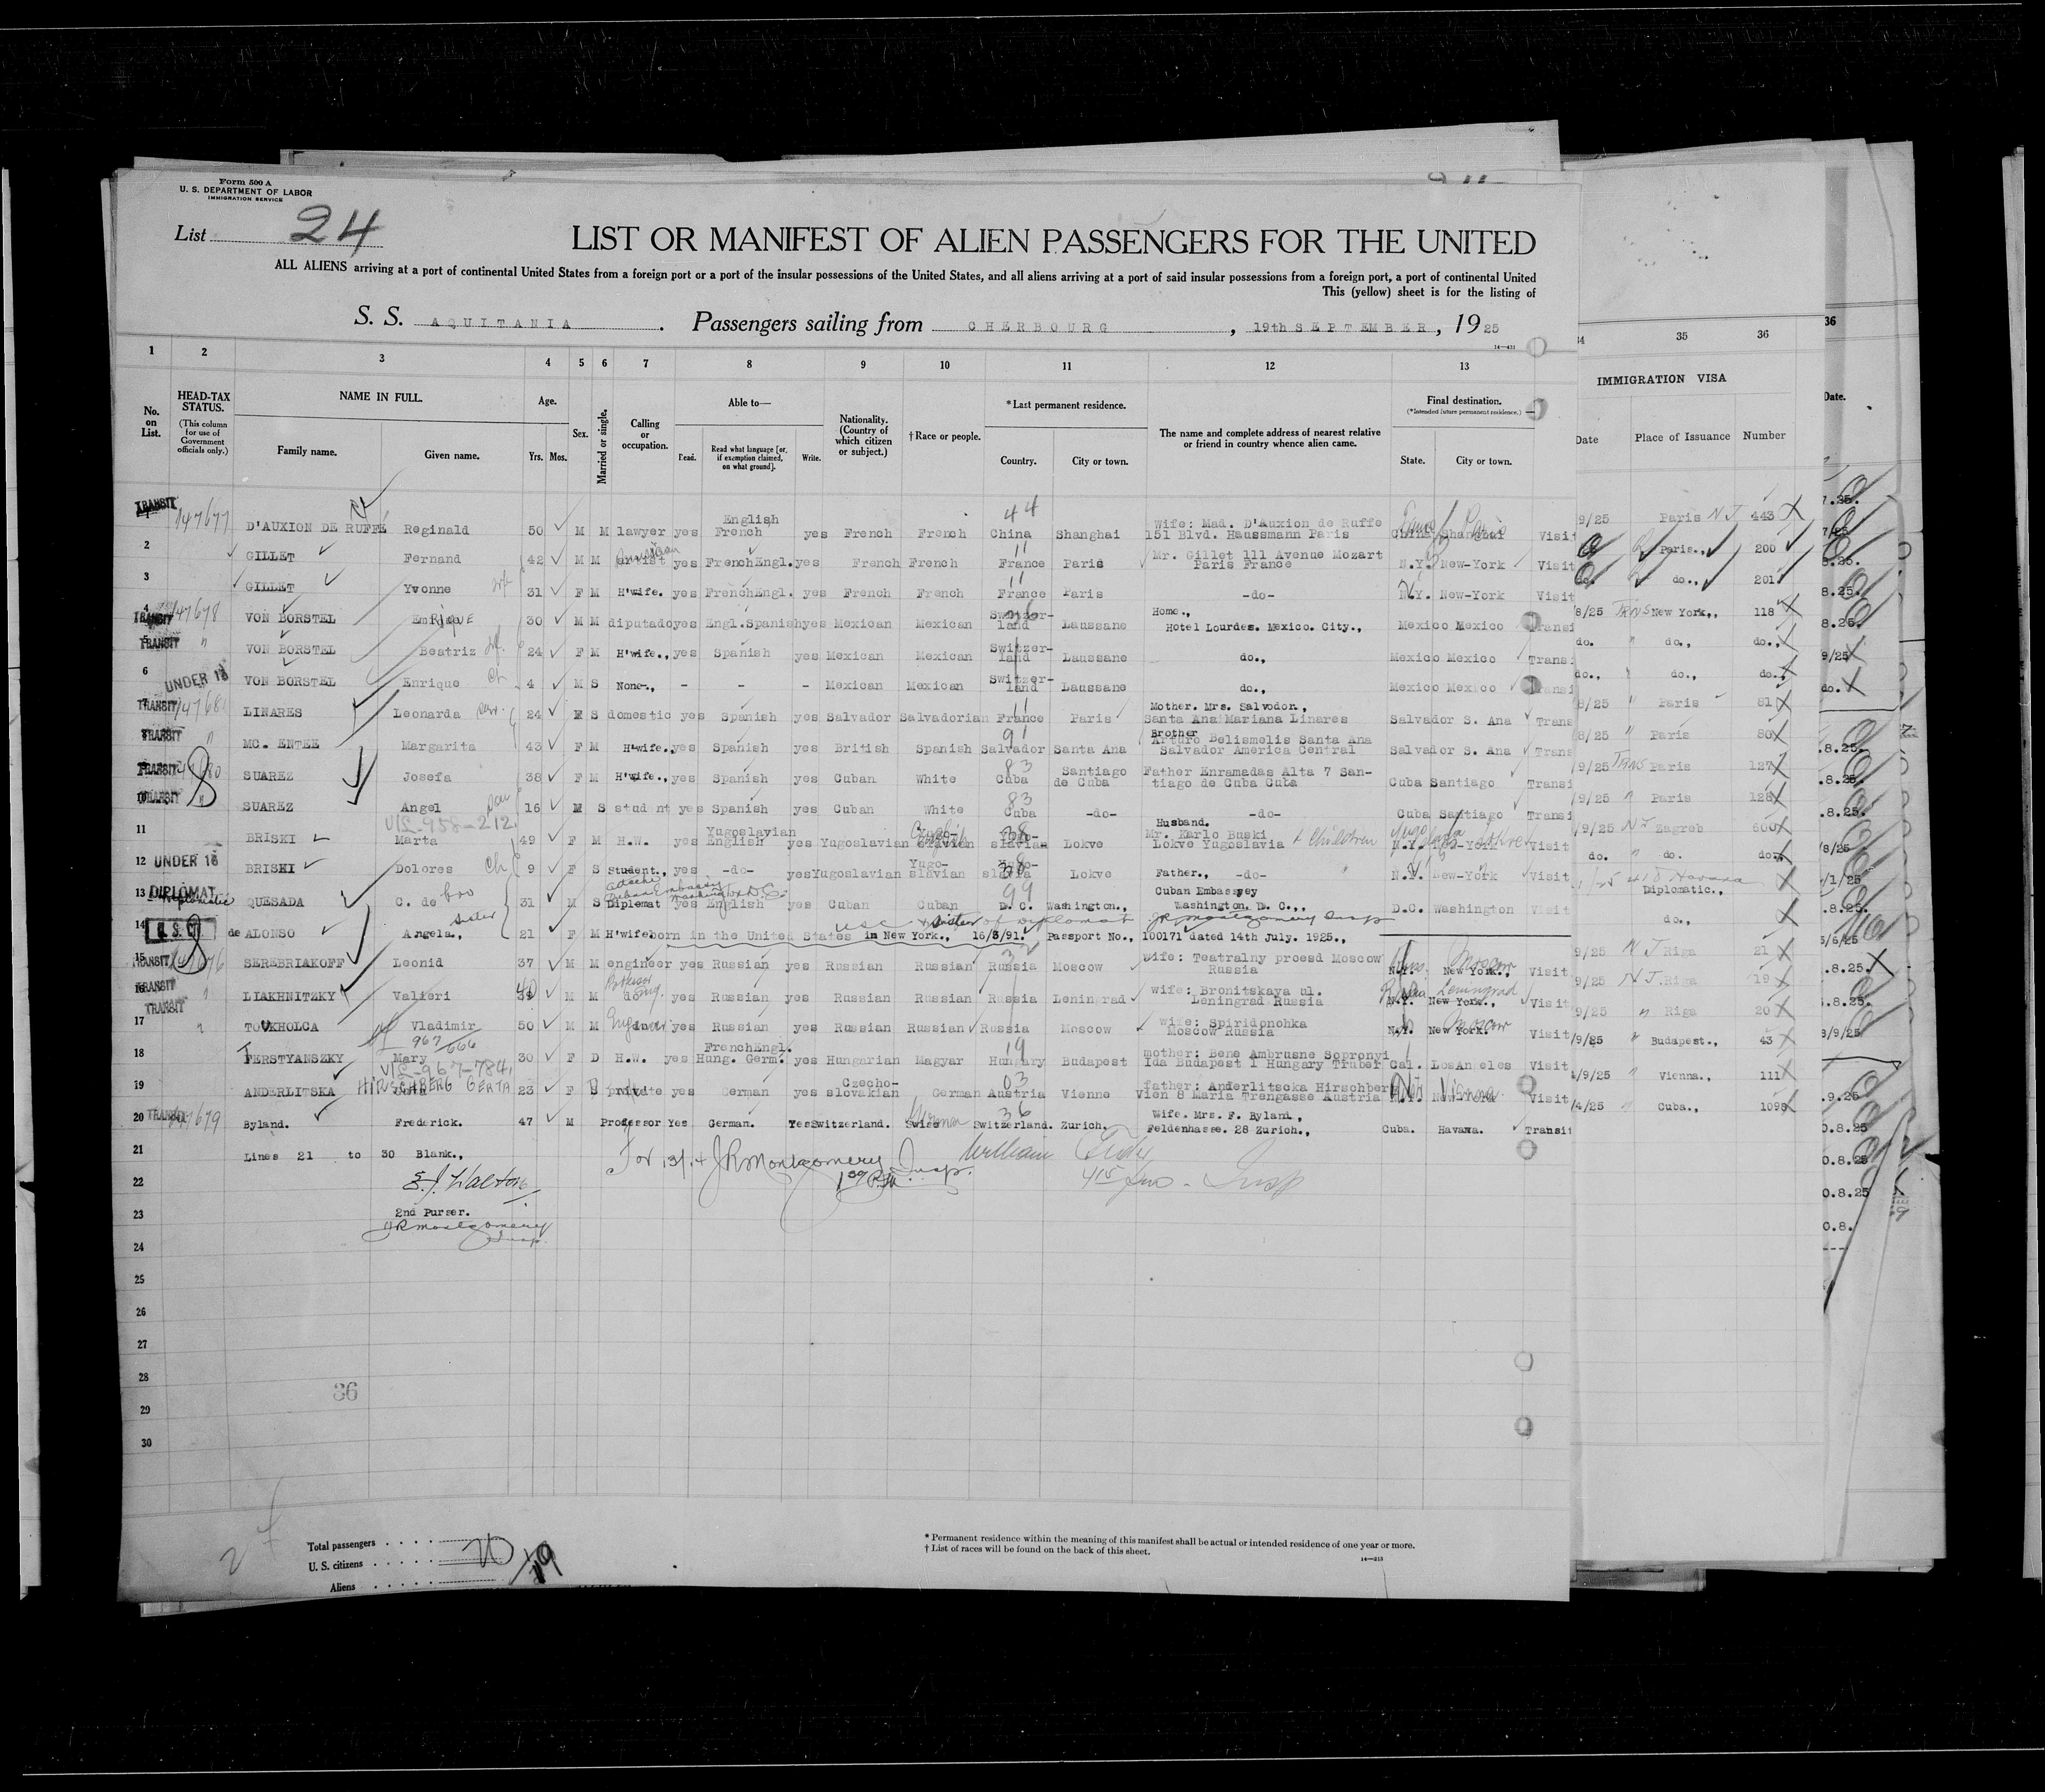 Form 500 A
U. S. DEPARTMENT OF LABOR
IMMIGRATION SERVICE
List 24
LIST OR MANIFEST OF ALIEN PASSENGERS FOR THE UNITED
ALL ALIENS arriving at a port of continental United States from a foreign port or a port of the insular possessions of the United States, and all aliens arriving at a port of said insular possessions from a foreign port, a port of continental United
This (yellow) sheet is for the listing of
S. S. AQUITANIA. Passengers sailing from CHERBOURG, 19th SEPTEMBER, 1925
14-431
1 2 3 4 5 6 7 8 9 10 11 12 13 35 36
No. on List. HEAD-TAX STATUS. (This column for use of Government officials only.) NAME IN FULL. Family name. Given name. Age. Yrs. Mos. Sex. Married or single. Calling or occupation. Able to— Read. Read what language [or, if exemption claimed, on what ground]. Write. Nationality. (Country of which citizen or subject.) † Race or people. *Last permanent residence. Country. City or town. The name and complete address of nearest relative or friend in country whence alien came. Final destination. (*Intended future permanent residence.) State. City or town. IMMIGRATION VISA Date Place of Issuance Number
TRANSIT 1 147677 D'AUXION DE RUFFÉ Reginald 50 M M lawyer yes English French yes French French 44 China Shanghai Wife: Mad. D'Auxion de Ruffe 151 Blvd. Haussmann Paris China Shanghai Visit 9/25 Paris N J 443
2 GILLET Fernand 42 M M artist yes French Engl. yes French French 11 France Paris Mr. Gillet 111 Avenue Mozart Paris France N.Y. New-York Visit Paris., 200
3 GILLET Yvonne wife 31 F M H'wife. yes French Engl. yes French French 11 France Paris -do- N.Y. New-York Visit do. do., 201
4 TRANSIT 147678 VON BORSTEL Enrique 30 M M diputado yes Engl. Spanish yes Mexican Mexican Switzerland Laussane Home., Hotel Lourdes. Mexico. City., Mexico Mexico Transi 8/25 TRNS New York,, 118
5 TRANSIT " VON BORSTEL Beatriz 24 F M H'wife., yes Spanish yes Mexican Mexican Switzer-land Laussane do., Mexico Mexico Transi do. " do., do.,
6 UNDER 16 VON BORSTEL Enrique ch 4 M S None-., - - - Mexican Mexican Switzer-land Laussane do., Mexico Mexico Transi do., " do., do.,
7 TRANSIT LINARES Leonarda 24 F S domestic yes Spanish yes Salvador Salvadorian 11 France Paris Mother. Mrs. Salvodor., Santa Ana Mariana Linares Salvador S. Ana Trans 8/25 " Paris 81
TRANSIT " MC. ENTEE Margarita 43 F M H'wife., yes Spanish yes British Spanish 91 Salvador Santa Ana Brother Arturo Belismelis Santa Ana Salvador America Central Salvador S. Ana Trans 8/25 " Paris 80
TRANSIT SUAREZ Josefa 38 F M H'wife., yes Spanish yes Cuban White 83 Cuba Santiago de Cuba Father Enramadas Alta 7 San-tiago de Cuba Cuba Cuba Santiago Transi 9/25 TRNS Paris 127
10 TRANSIT " SUAREZ Angel 16 M S stud nt yes Spanish yes Cuban White 83 Cuba -do- -do- Cuba Santiago Transi 9/25 " Paris 128
VIS-958-212
11 BRISKI Marta 49 F M H.W. yes Yugoslavian English yes Yugoslavian slavian Lokve Husband. Mr. Karlo Buski Lokve Yugoslavia + Children N.Y. New-York Visit 9/25 Zagreb 600
12 UNDER 16 BRISKI Dolores ch 9 F S Student., yes -do- yes Yugoslavian Yugo-slavian Yugo-slavia Lokve Father., -do- N.Y. New-York Visit do. " do. do.
13 DIPLOMAT QUESADA C. de bro 31 M S attache Cuban Embassy Washington D.C. Diplomat yes English yes Cuban Cuban 99 D. C. Washington., Cuban Embassey Washington. D. C.,, D.C. Washington Visit Havana Diplomatic.,
14 U.S.C. de ALONSO Angela., sister 21 F M H'wife born in the United States in New York., 16/3/91. Passport No., 100171 dated 14th July. 1925., U S C sister of Diplomat J R Montgomery Insp do.,
15 TRANSIT 147676 SEREBRIAKOFF Leonid 37 M M engineer yes Russian yes Russian Russian Russia Moscow wife: Teatralny proesd Moscow Russia N.Y. New York., Moscow Visit 9/25 N J Riga 21
16 TRANSIT " LIAKHNITZKY Valieri 40 M M do yes Russian yes Russian Russian Russia Leningrad wife: Bronitskaya ul. Leningrad Russia N.Y. New York., Leningrad Visit 9/25 N J. Riga 19
17 TRANSIT " TOVKHOLCA Vladimir 50 M M Engineer yes Russian yes Russian Russian Russia Moscow wife: Spiridonohka Moscow Russia N.Y. New York. Moscow Visit 9/25 " Riga 20
967/666
18 FERSTYANSZKY Mary 30 F D H.W. yes French Engl. Hung. Germ. yes Hungarian Magyar 19 Hungary Budapest mother: Bene Ambrusne Sopronyi Ida Budapest 1 Hungary Truber Cal. LosAngeles Visit 9/25 " Budapest., 43
VIS-967-784
19 ANDERLITSKA HIRSCHBERG GERTA 23 F private yes German yes Czecho-slovakian German 03 Austria Vienne father: Anderlitscka Hirschberg Vien 8 Maria Trengasse Austria Vienna Visit 4/9/25 " Vienna., 111
20 TRANSIT 147679 Byland. Frederick. 47 M Professor Yes German. Yes Switzerland. Swiss German 36 Switzerland. Zurich. Wife. Mrs. F. Byland, Feldenhasse. 28 Zurich., Cuba. Havana. Transit 4/25 " Cuba., 1098
21 Lines 21 to 30 Blank.,
For 13/14 J R Montgomery Insp. William
22 E. J. Walton
23 2nd Purser.
J R Montgomery Insp.
24
25
26
27
28
36
29
30
Total passengers 20
U. S. citizens
Aliens 19
* Permanent residence within the meaning of this manifest shall be actual or intended residence of one year or more.
† List of races will be found on the back of this sheet.
14—213